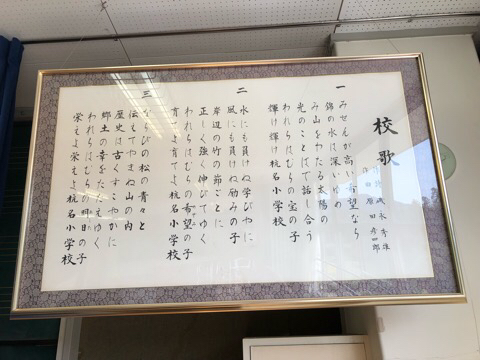 校歌
一
みせんが高い希望なら
錦の水は深いゆめ
み山をわたる太陽の
光のことばで話し合う
われらはむらの宝の子
輝け輝け杭名小学校
二
水にも負けぬ学びやに
風にも負けぬ励みの子
岸辺の竹の節ごとに
正しく強く伸びてゆく
われらはむらの希望の子
育てよ育てよ杭名小学校
三
ならびの松の青々と
伝えてやまぬ山の内
歴史は古くすこやかに
郷土の幸をたたえゆく
われらはむらの明日の子
栄えよ栄えよ杭名小学校